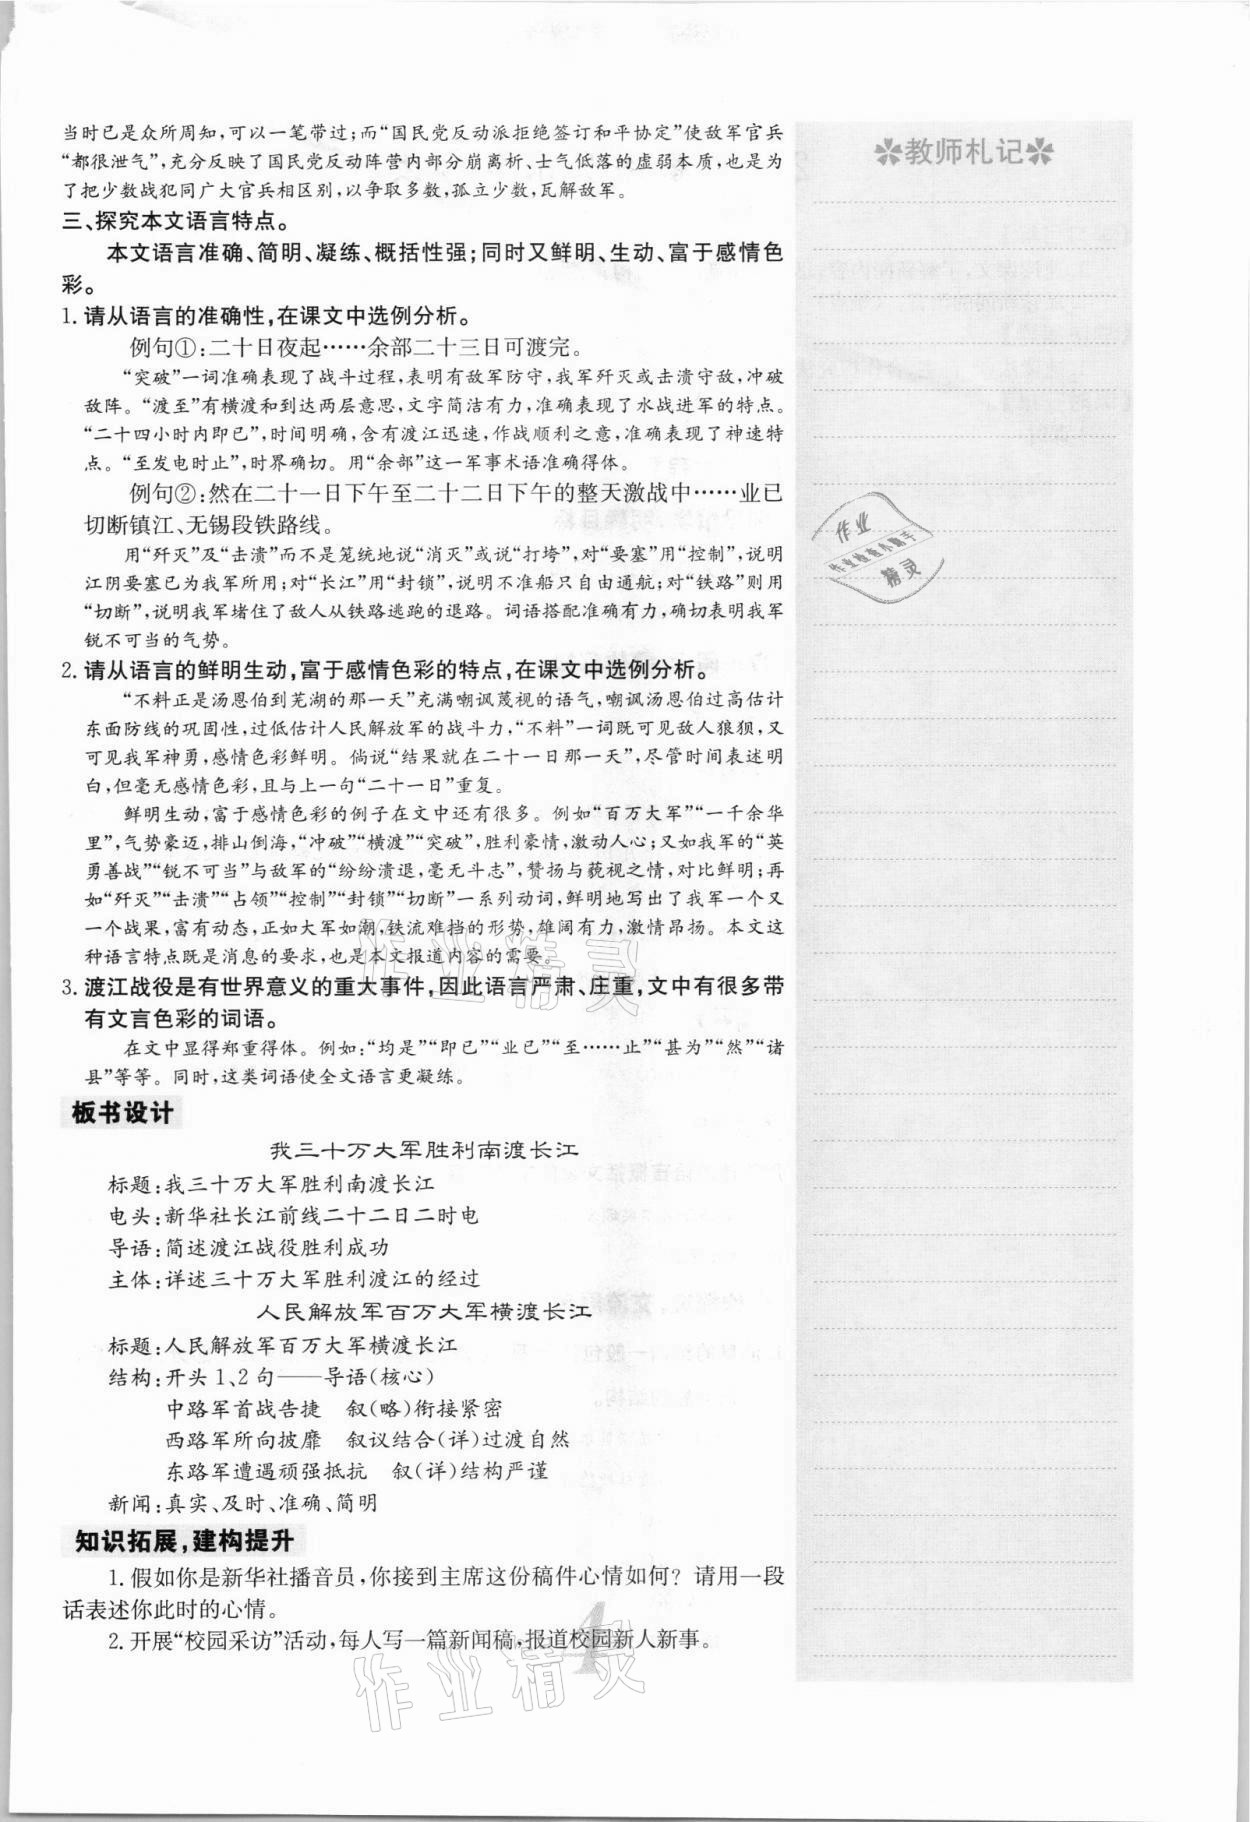 当时已是众所周知,可以一笔带过;而“国民党反动派拒绝签订和平协定”使敌军官兵
“都很泄气”,充分反映了国民党反动阵营内部分崩离析、士气低落的虚弱本质,也是为
了把少数战犯同广大官兵相区别,以争取多数,孤立少数,瓦解敌军。
三、探究本文语言特点。
本文语言准确、简明、凝练、概括性强;同时又鲜明、生动、富于感情色
彩。
1. 请从语言的准确性,在课文中选例分析。
例句①:二十日夜起……余部二十三日可渡完。
“突破”一词准确表现了战斗过程,表明有敌军防守,我军歼灭或击溃守敌,冲破
敌阵。“渡至”有横渡和到达两层意思,文字简洁有力,准确表现了水战进军的特点。
“二十四小时内即已”,时间明确,含有渡江迅速,作战顺利之意,准确表现了神速特
点。“至发电时止”,时界确切。用“余部”这一军事术语准确得体。
例句②:然在二十一日下午至二十二日下午的整天激战中……业已
切断镇江、无锡段铁路线。
用“歼灭”及“击溃”而不是笼统地说“消灭”或说“打垮”,对“要塞”用“控制”,说明
江阴要塞已为我军所用;对“长江”用“封锁”,说明不准船只自由通航;对“铁路”则用
“切断”,说明我军堵住了敌人从铁路逃跑的退路。词语搭配准确有力,确切表明我军
锐不可当的气势。
2. 请从语言的鲜明生动,富于感情色彩的特点,在课文中选例分析。
“不料正是汤恩伯到芜湖的那一天”充满嘲讽蔑视的语气,嘲讽汤恩伯过高估计
东面防线的巩固性,过低估计人民解放军的战斗力,“不料”一词既可见敌人狼狈,又
可见我军神勇,感情色彩鲜明。倘说“结果就在二十一日那一天”,尽管时间表述明
白,但毫无感情色彩,且与上一句“二十一日”重复。
鲜明生动,富于感情色彩的例子在文中还有很多。例如“百万大军”“一千余华
里”,气势豪迈,排山倒海,“冲破”“横渡”“突破”,胜利豪情,激动人心;又如我军的“英
勇善战”“锐不可当”与敌军的“纷纷溃退,毫无斗志”,赞扬与藐视之情,对比鲜明;再
如“歼灭”“击溃”“占领”“控制”“封锁”“切断”一系列动词,鲜明地写出了我军一个又
一个战果,富有动态,正如大军如潮,铁流难挡的形势,雄阔有力,激情昂扬。本文这
种语言特点既是消息的要求,也是本文报道内容的需要。
3. 渡江战役是有世界意义的重大事件,因此语言严肃、庄重,文中有很多带
有文言色彩的词语。
在文中显得郑重得体。例如:“均是”“即已”“业已”“至……止”“甚为”“然”“诸
县”等等。同时,这类词语使全文语言更凝练。
板书设计
我三十万大军胜利南渡长江
标题:我三十万大军胜利南渡长江
电头:新华社长江前线二十二日二时电
导语:简述渡江战役胜利成功
主体:详述三十万大军胜利渡江的经过
人民解放军百万大军横渡长江
标题:人民解放军百万大军横渡长江
结构:开头1、2句——导语(核心)
中路军首战告捷 叙(略)衔接紧密
西路军所向披靡 叙议结合(详)过渡自然
东路军遭遇顽强抵抗 叙(详)结构严谨
新闻:真实、及时、准确、简明
知识拓展,建构提升
1. 假如你是新华社播音员,你接到主席这份稿件心情如何? 请用一段
话表述你此时的心情。
2. 开展“校园采访”活动,每人写一篇新闻稿,报道校园新人新事。
4
教师札记
作业
作业检查小助手
精灵
作业精灵
作业精灵